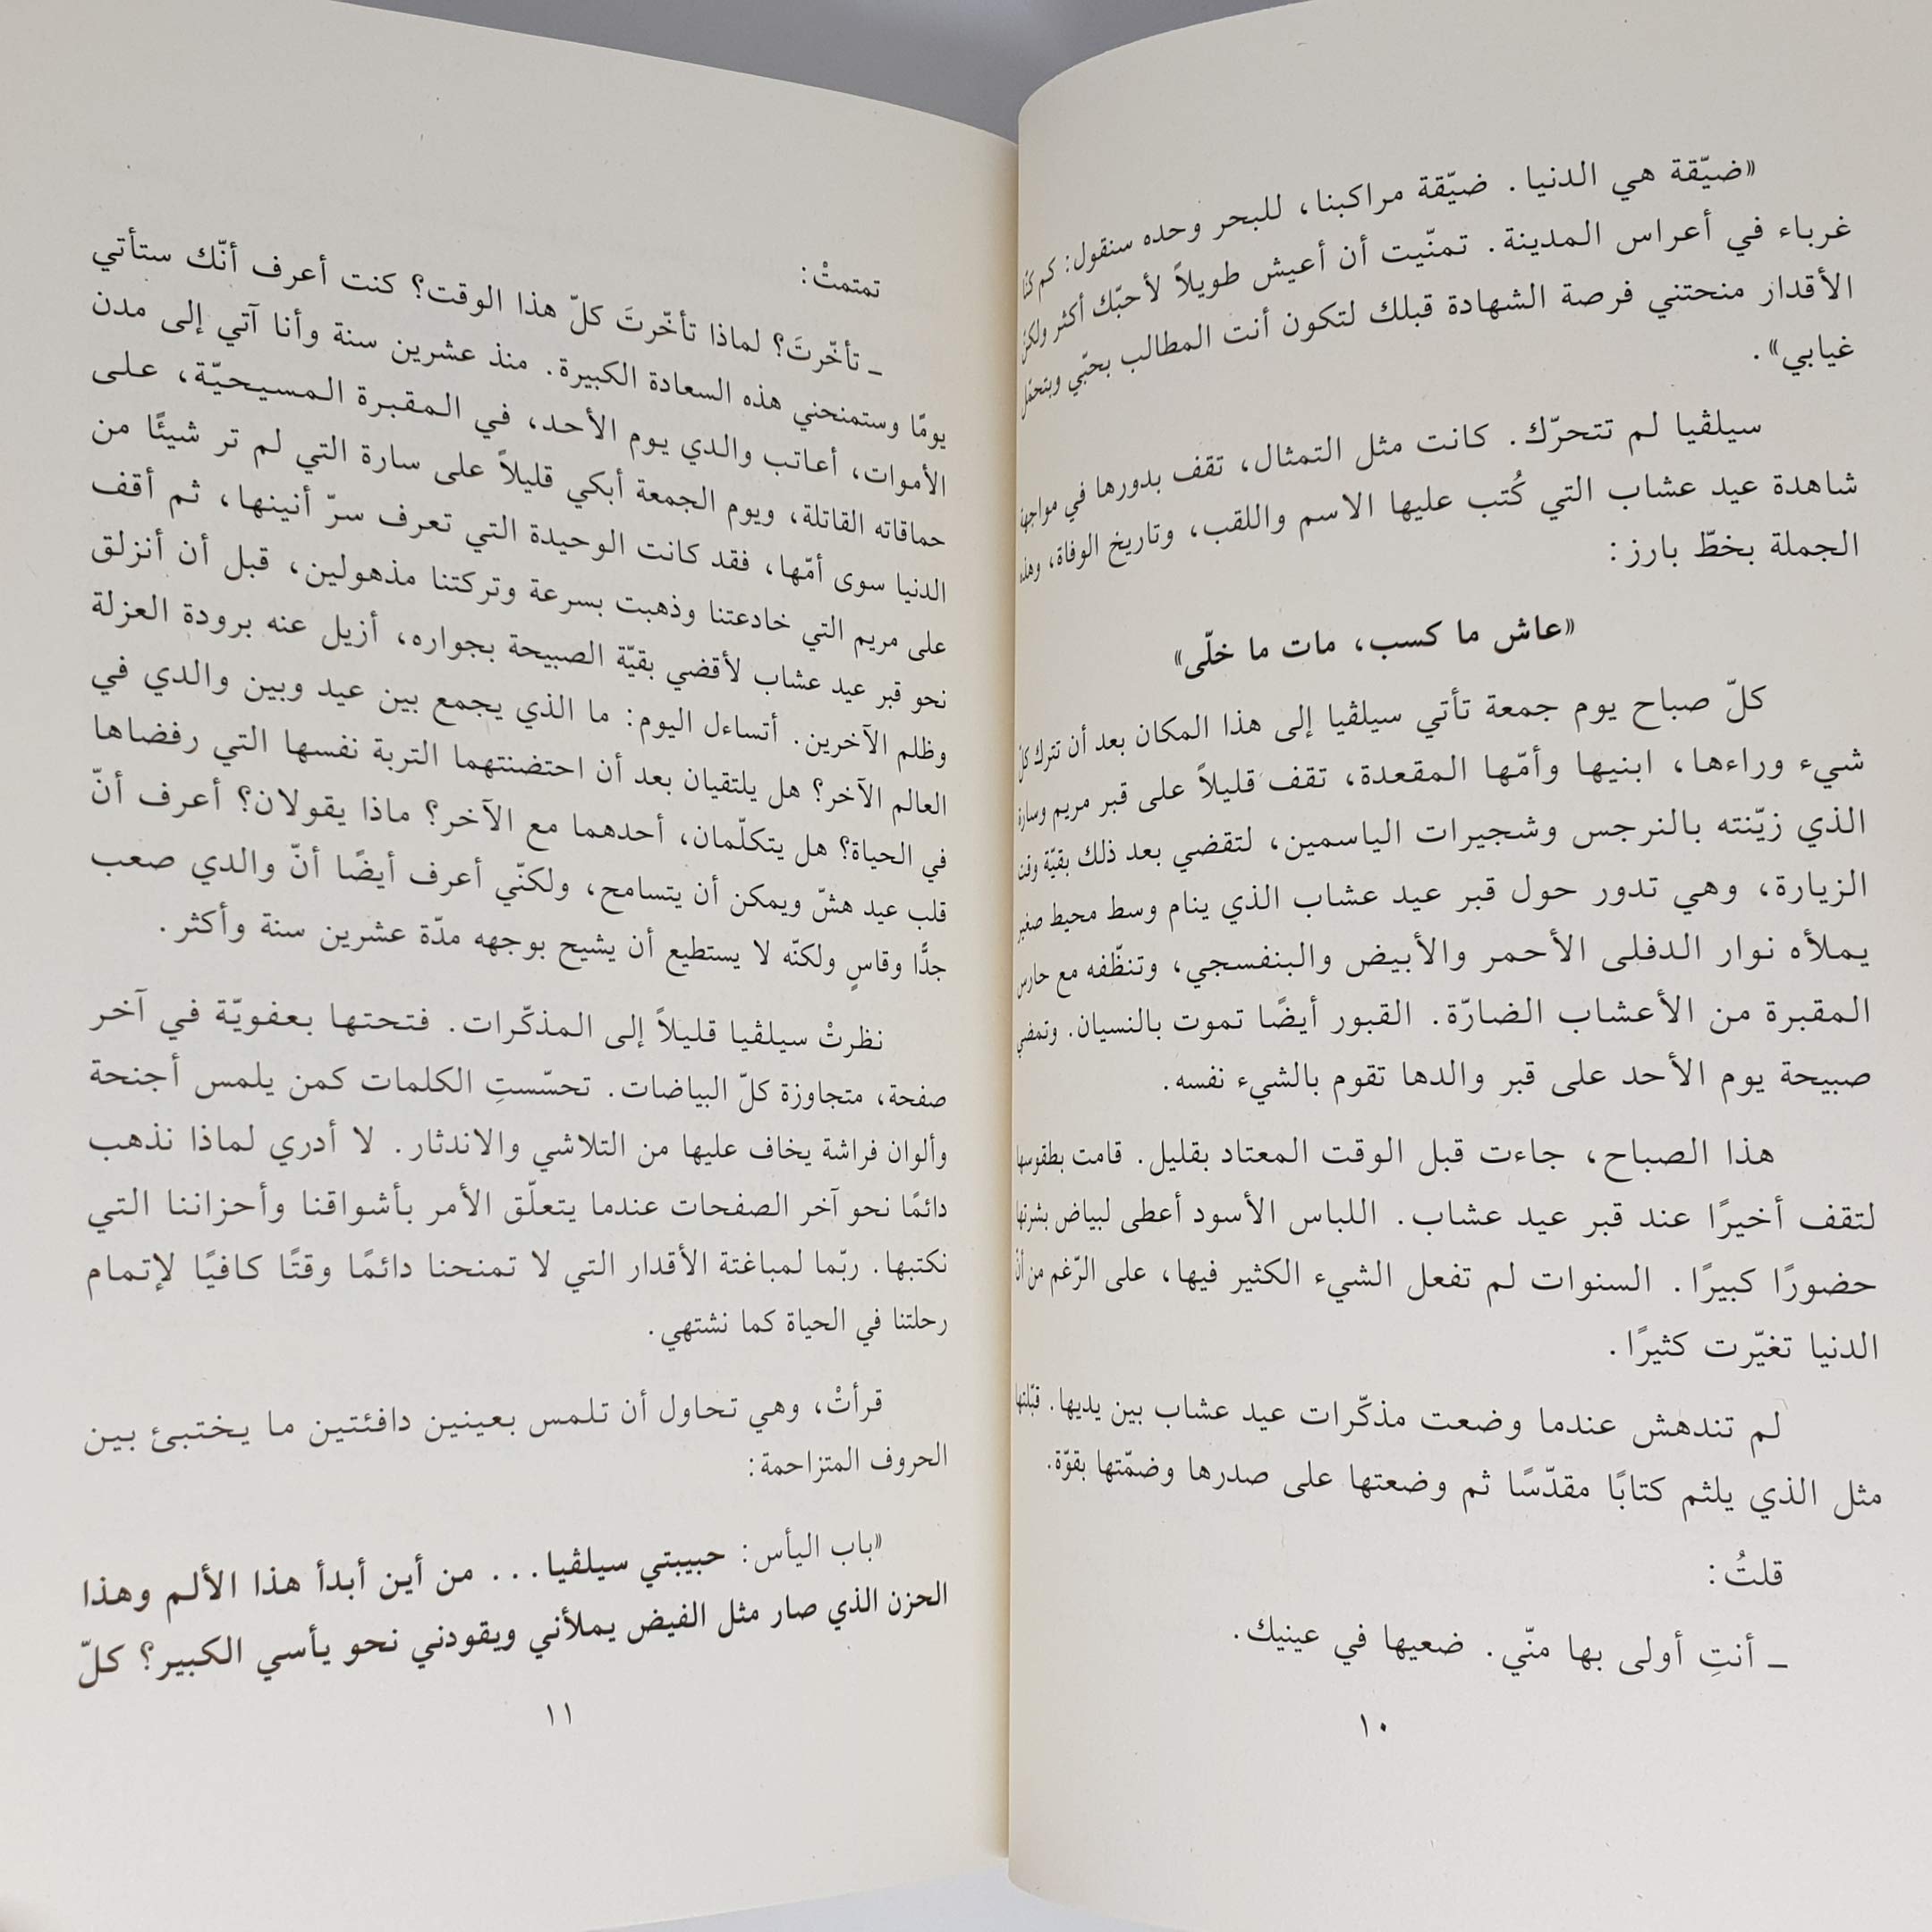 «ضيّقة هي الدنيا. ضيّقة مراكبنا، للبحر وحده سنقول: كم كنّا
غرباء في أعراس المدينة. تمنّيت أن أعيش طويلاً لأحبّك أكثر ولكنّ
الأقدار منحتني فرصة الشهادة قبلك لتكون أنت المطالب بحبّي وبتحمّل
غيابي».
سيلڤيا لم تتحرّك. كانت مثل التمثال، تقف بدورها في مواجهة
شاهدة عيد عشاب التي كُتب عليها الاسم واللقب، وتاريخ الوفاة، وهذه
الجملة بخطّ بارز:
«عاش ما كسب، مات ما خلّى»
كلّ صباح يوم جمعة تأتي سيلڤيا إلى هذا المكان بعد أن تترك كلّ
شيء وراءها، ابنيها وأمّها المقعدة، تقف قليلاً على قبر مريم وسارة
الذي زيّنته بالنرجس وشجيرات الياسمين، لتقضي بعد ذلك بقيّة وقت
الزيارة، وهي تدور حول قبر عيد عشاب الذي ينام وسط محيط صغير
يملأه نوار الدفلى الأحمر والأبيض والبنفسجي، وتنظّفه مع حارس
المقبرة من الأعشاب الضارّة. القبور أيضًا تموت بالنسيان. وتمضي
صبيحة يوم الأحد على قبر والدها تقوم بالشيء نفسه.
هذا الصباح، جاءت قبل الوقت المعتاد بقليل. قامت بطقوسها
لتقف أخيرًا عند قبر عيد عشاب. اللباس الأسود أعطى لبياض بشرتها
حضورًا كبيرًا. السنوات لم تفعل الشيء الكثير فيها، على الرّغم من أنّ
الدنيا تغيّرت كثيرًا.
لم تندهش عندما وضعت مذكّرات عيد عشاب بين يديها. قبّلتها
مثل الذي يلثم كتابًا مقدّسًا ثم وضعتها على صدرها وضمّتها بقوّة.
قلتُ:
ـ أنتِ أولى بها منّي. ضعيها في عينيك.
١٠
تمتمتْ:
ـ تأخّرتَ؟ لماذا تأخّرتَ كلّ هذا الوقت؟ كنت أعرف أنّك ستأتي
يومًا وستمنحني هذه السعادة الكبيرة. منذ عشرين سنة وأنا آتي إلى مدن
الأموات، أعاتب والدي يوم الأحد، في المقبرة المسيحيّة، على
حماقاته القاتلة، ويوم الجمعة أبكي قليلاً على سارة التي لم تر شيئًا من
الدنيا سوى أمّها، فقد كانت الوحيدة التي تعرف سرّ أنينها، ثم أقف
على مريم التي خادعتنا وذهبت بسرعة وتركتنا مذهولين، قبل أن أنزلق
نحو قبر عيد عشاب لأقضي بقيّة الصبيحة بجواره، أزيل عنه برودة العزلة
وظلم الآخرين. أتساءل اليوم: ما الذي يجمع بين عيد وبين والدي في
العالم الآخر؟ هل يلتقيان بعد أن احتضنتهما التربة نفسها التي رفضاها
في الحياة؟ هل يتكلّمان، أحدهما مع الآخر؟ ماذا يقولان؟ أعرف أنّ
قلب عيد هشّ ويمكن أن يتسامح، ولكنّي أعرف أيضًا أنّ والدي صعب
جدًّا وقاسٍ ولكنّه لا يستطيع أن يشيح بوجهه مدّة عشرين سنة وأكثر.
نظرتْ سيلڤيا قليلاً إلى المذكّرات. فتحتها بعفويّة في آخر
صفحة، متجاوزة كلّ البياضات. تحسّستِ الكلمات كمن يلمس أجنحة
وألوان فراشة يخاف عليها من التلاشي والاندثار. لا أدري لماذا نذهب
دائمًا نحو آخر الصفحات عندما يتعلّق الأمر بأشواقنا وأحزاننا التي
نكتبها. ربّما لمباغتة الأقدار التي لا تمنحنا دائمًا وقتًا كافيًا لإتمام
رحلتنا في الحياة كما نشتهي.
قرأتْ، وهي تحاول أن تلمس بعينين دافئتين ما يختبئ بين
الحروف المتزاحمة:
«باب اليأس: حبيبتي سيلڤيا... من أين أبدأ هذا الألم وهذا
الحزن الذي صار مثل الفيض يملأني ويقودني نحو يأسي الكبير؟ كلّ
١١